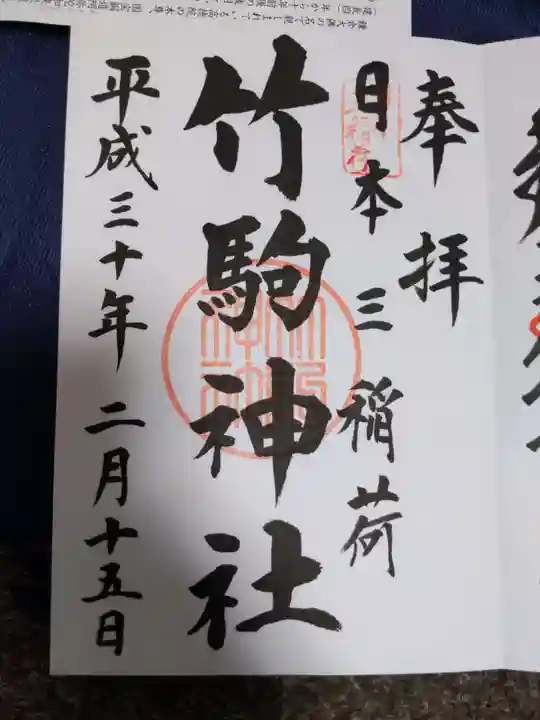 奉拝
日本三稲荷
竹駒神社
平成三十年二月十五日